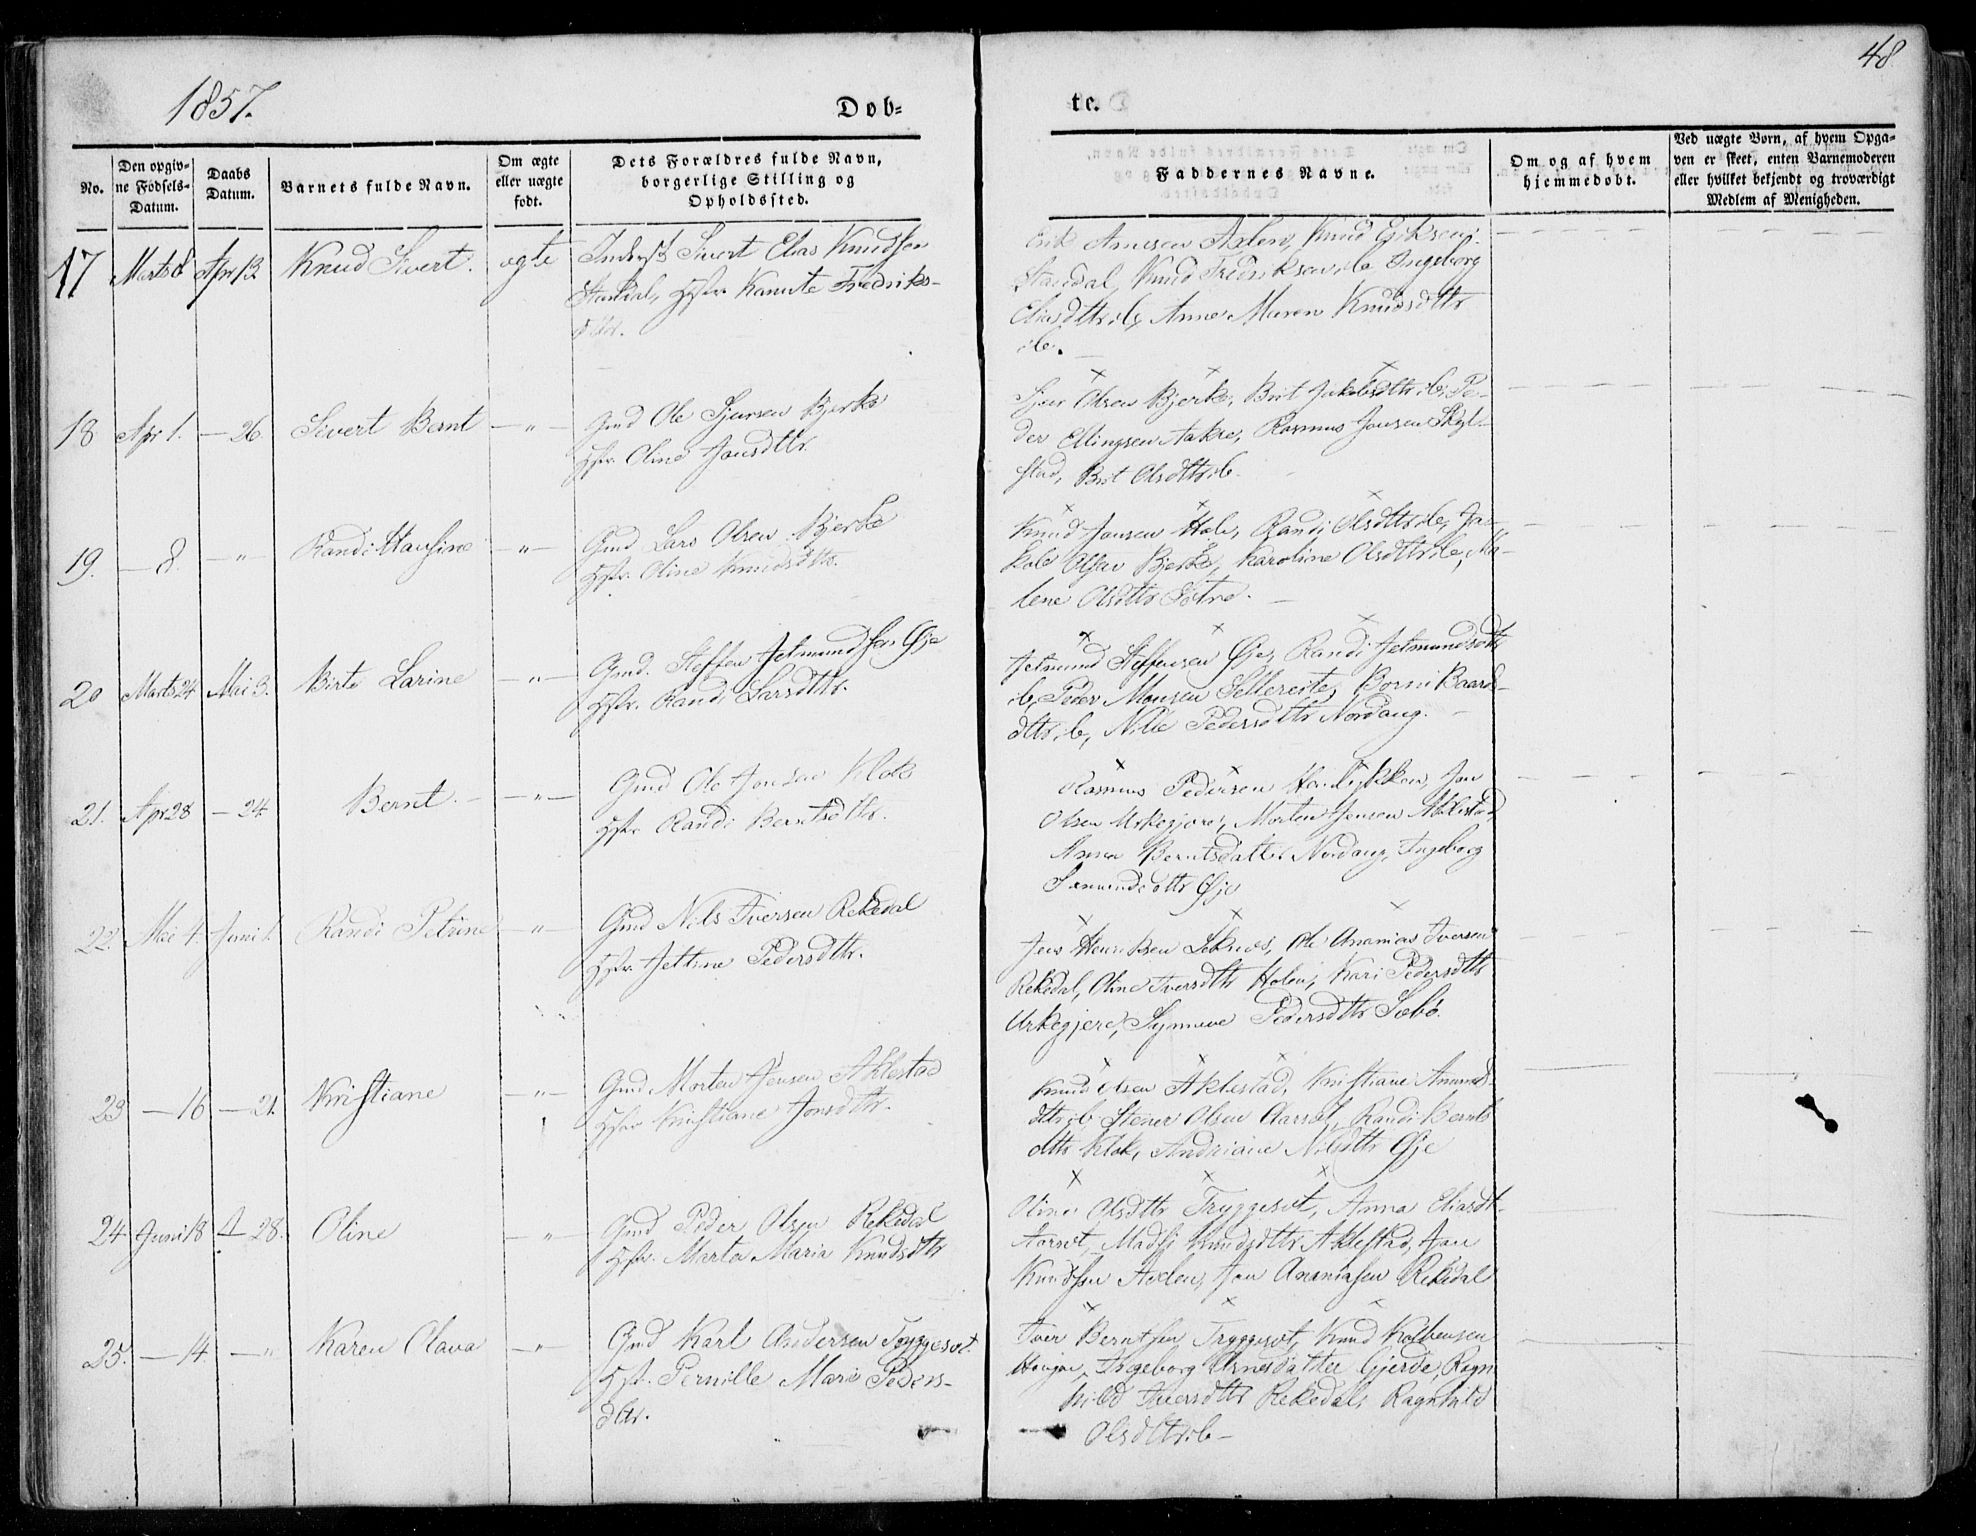 1857.
Døb=
te.
48
No.
Den opgiv-
ne Fødsels-
Datum.
Daabs
Datum.
Barnets fulde Navn.
Om ægte
eller uægte
født.
Dets Forældres fulde Navn,
borgerlige Stilling og
Opholdssted.
Faddernes Navne.
Om og af hvem
hjemmedøbt.
Ved uægte Børn, af hvem Opga-
ven er skeet, enten Barnemoderen
eller hvilket bekjendt og troværdigt
Medlem af Menigheden.
17 Marts 8 Apr 13 Knud Sivert. ægte
Inderst Sivert Elias Knudsen
Standal, Hstr. Kanute Fredriks-
dtr.
Erik Arnesen Axlen, Knud Eriksen
Standal, Knud Fredriksen ib Ingeborg
Eliasdttr ib, Anne Maren Knudsdttr
ib.
18 Apr 1. — 26. Sivert Bernt — „ —
Gmd Ole Sjursen Bjerke
Hstr. Oline Jonsdttr.
Sjur Olsen Bjerke, Brit Jakobsdttr ib, Pe-
der Ellingsen Aakre, Rasmus Jonsen Skyl-
stad, Brit Olsdttr ib.
19. — 8. — „ Randi Hansine — „ —
Gmd Lars Olsen Bjerke
Hstr. Oline Knudsdttr.
Knud Jonsen Hole, Randi Olsdttr ib, Ja-
kob Olsen Bjerke, Karoline Olsdttr ib, Ma-
lene Olsdttr Sætre.
20 Marts 24 Mai 3. Birte Larine — „ —
Gmd. Steffen Jetmundsen Øje
Hstr. Randi Larsdttr.
Jetmund Steffensen Øje, Randi Jetmundsdttr
ib, Peder Monsen Sellereite, Borni Baards-
dttr ib, Nille Pedersdttr Nordang.
21. Apr 28 — 24 Bernt. — „ —
Gmd Ole Jonsen Klok
Hstr Randi Berntsdttr.
Rasmus Pedersen Jan
Olsen Urkegjære, Morten Jensen Aklestad,
Berntsdatter Nordang, Ingeborg
Øje
22. Mai 4. Juni 1. Randi Petrine — „ —
Gmd Nils Iversen Rekedal
Hstr. Jettine Pedersdttr.
Jens Henriksen Leknes, Ole Ananias Iversen
Rekedal, Oline Iversdttr Holen, Kari Pedersdttr
Urkegjere, Synneve Pedersdttr Sæbø.
23 — 16 — 21. Kristiane — „ —
Gmd Morten Jensen Aklestad
Hstr Kristiane Jonsdttr.
Knud Olsen Aklestad, Kristiane Amunds-
dttr ib Stener Olsen Aarsæt, Randi Bernts
dttr Klok, Andriane Nilsdttr Øje
24 Juni 18 — 28. Oline — „ —
Gmd Peder Olsen Rekedal
Hstr. Marta Maria Knudsdttr
Oline Olsdttr Tryggesæt, Anna Eliasdt-
Aarsæt, Knudsdttr Aklestad, Jon
Knudsen Axlen, Jon Ananiasen Rekedal
25. — 14 — „ Karen Olava — „ —
Gmd Karl Andersen Tryggesæt.
Hstr. Pernille Marie Peders-
dtr.
Iver Berntsen Tryggesæt, Knud Kolbensen
Ingeborg Arnesdatter Gjerde, Ragn
hild Iversdttr Rekedal, Ragnhild
Olsdttr ib —